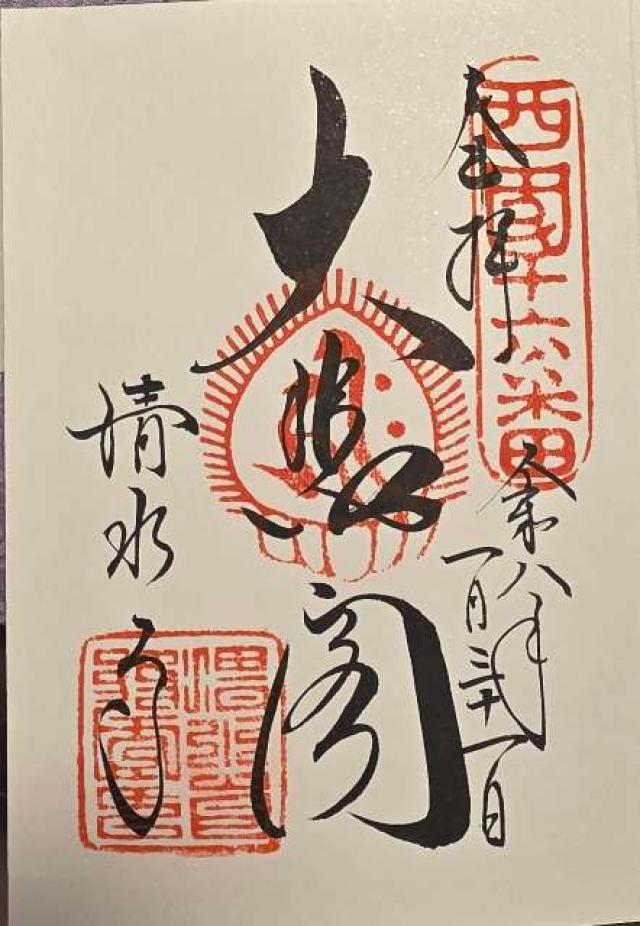 西國十六番
奉拝
令和八年
一月三十一日
大悲閣
清水寺